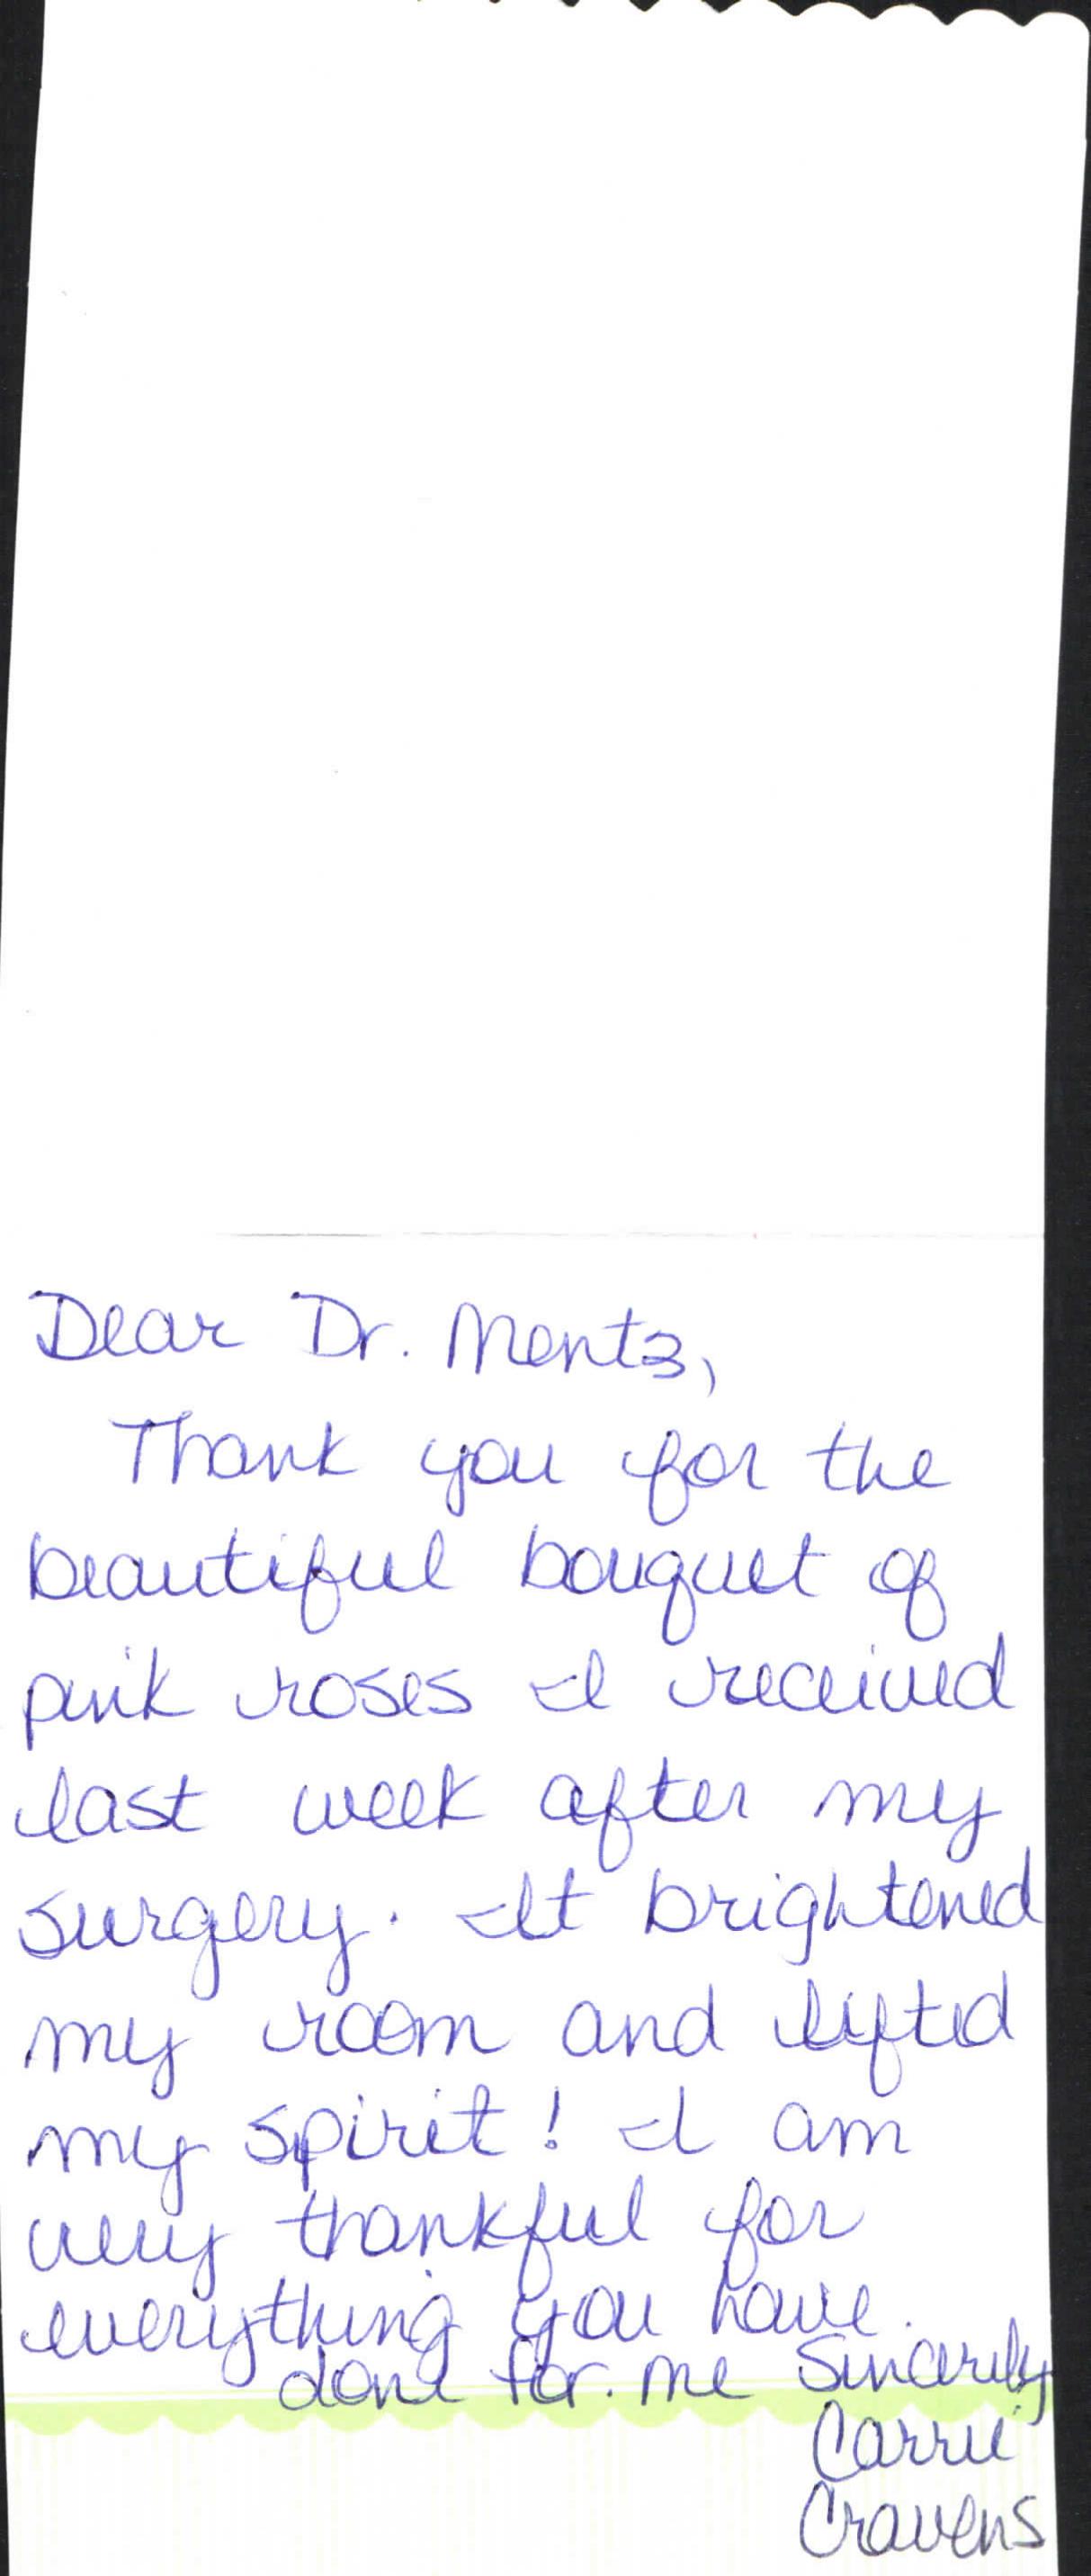 Dear Dr. Mentz,
Thank you for the
beautiful bouquet of
pink roses I received
last week after my
surgery. It brightened
my room and lifted
my spirit! I am
very thankful for
everything you have.
done for. me Sincerely
Carrie
Cravens